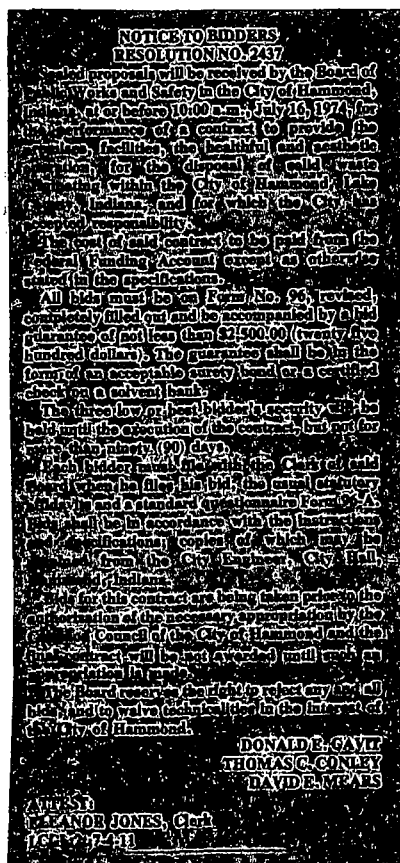 NOTICE TO BIDDERS
RESOLUTION NO. 2437
Sealed proposals will be received by the Board of
Works and Safety in the City of Hammond,
Indiana, at or before 10:00 a.m., July 16, 1974, for
the performance of a contract to provide the
facilities, the healthful and aesthetic
for the disposal of solid waste
within the City of Hammond, Lake
Indiana, and for which the City has
responsibility.
The cost of said contract to be paid from the
Federal Funding Account except as otherwise
stated in the specifications.
All bids must be on Form No. 96, revised,
completely filled out and be accompanied by a bid
guarantee of not less than $2,500.00 (twenty five
hundred dollars). The guarantee shall be in the
form of an acceptable surety bond or a certified
check on a solvent bank.
The three low or best bidder's security will be
held until the execution of the contract, but not for
than ninety (90) days.
Each bidder must file with the Clerk of said
Board when he files his bid, the usual statutory
and a standard questionnaire Form 96-A.
Bids shall be in accordance with the instructions
specifications, copies of which may be
from the City Engineer, City Hall,
Hammond, Indiana.
Bids for this contract are being taken prior to the
authorization of the necessary appropriation by the
Council of the City of Hammond and the
contract will be not awarded until such an
appropriation is made.
The Board reserves the right to reject any and all
bids, and to waive technicalities in the interest of
the City of Hammond.
DONALD E. GAVIT
THOMAS C. CONLEY
DAVID E. MEARS
ATTEST:
ELEANOR JONES, Clerk
7-4-11